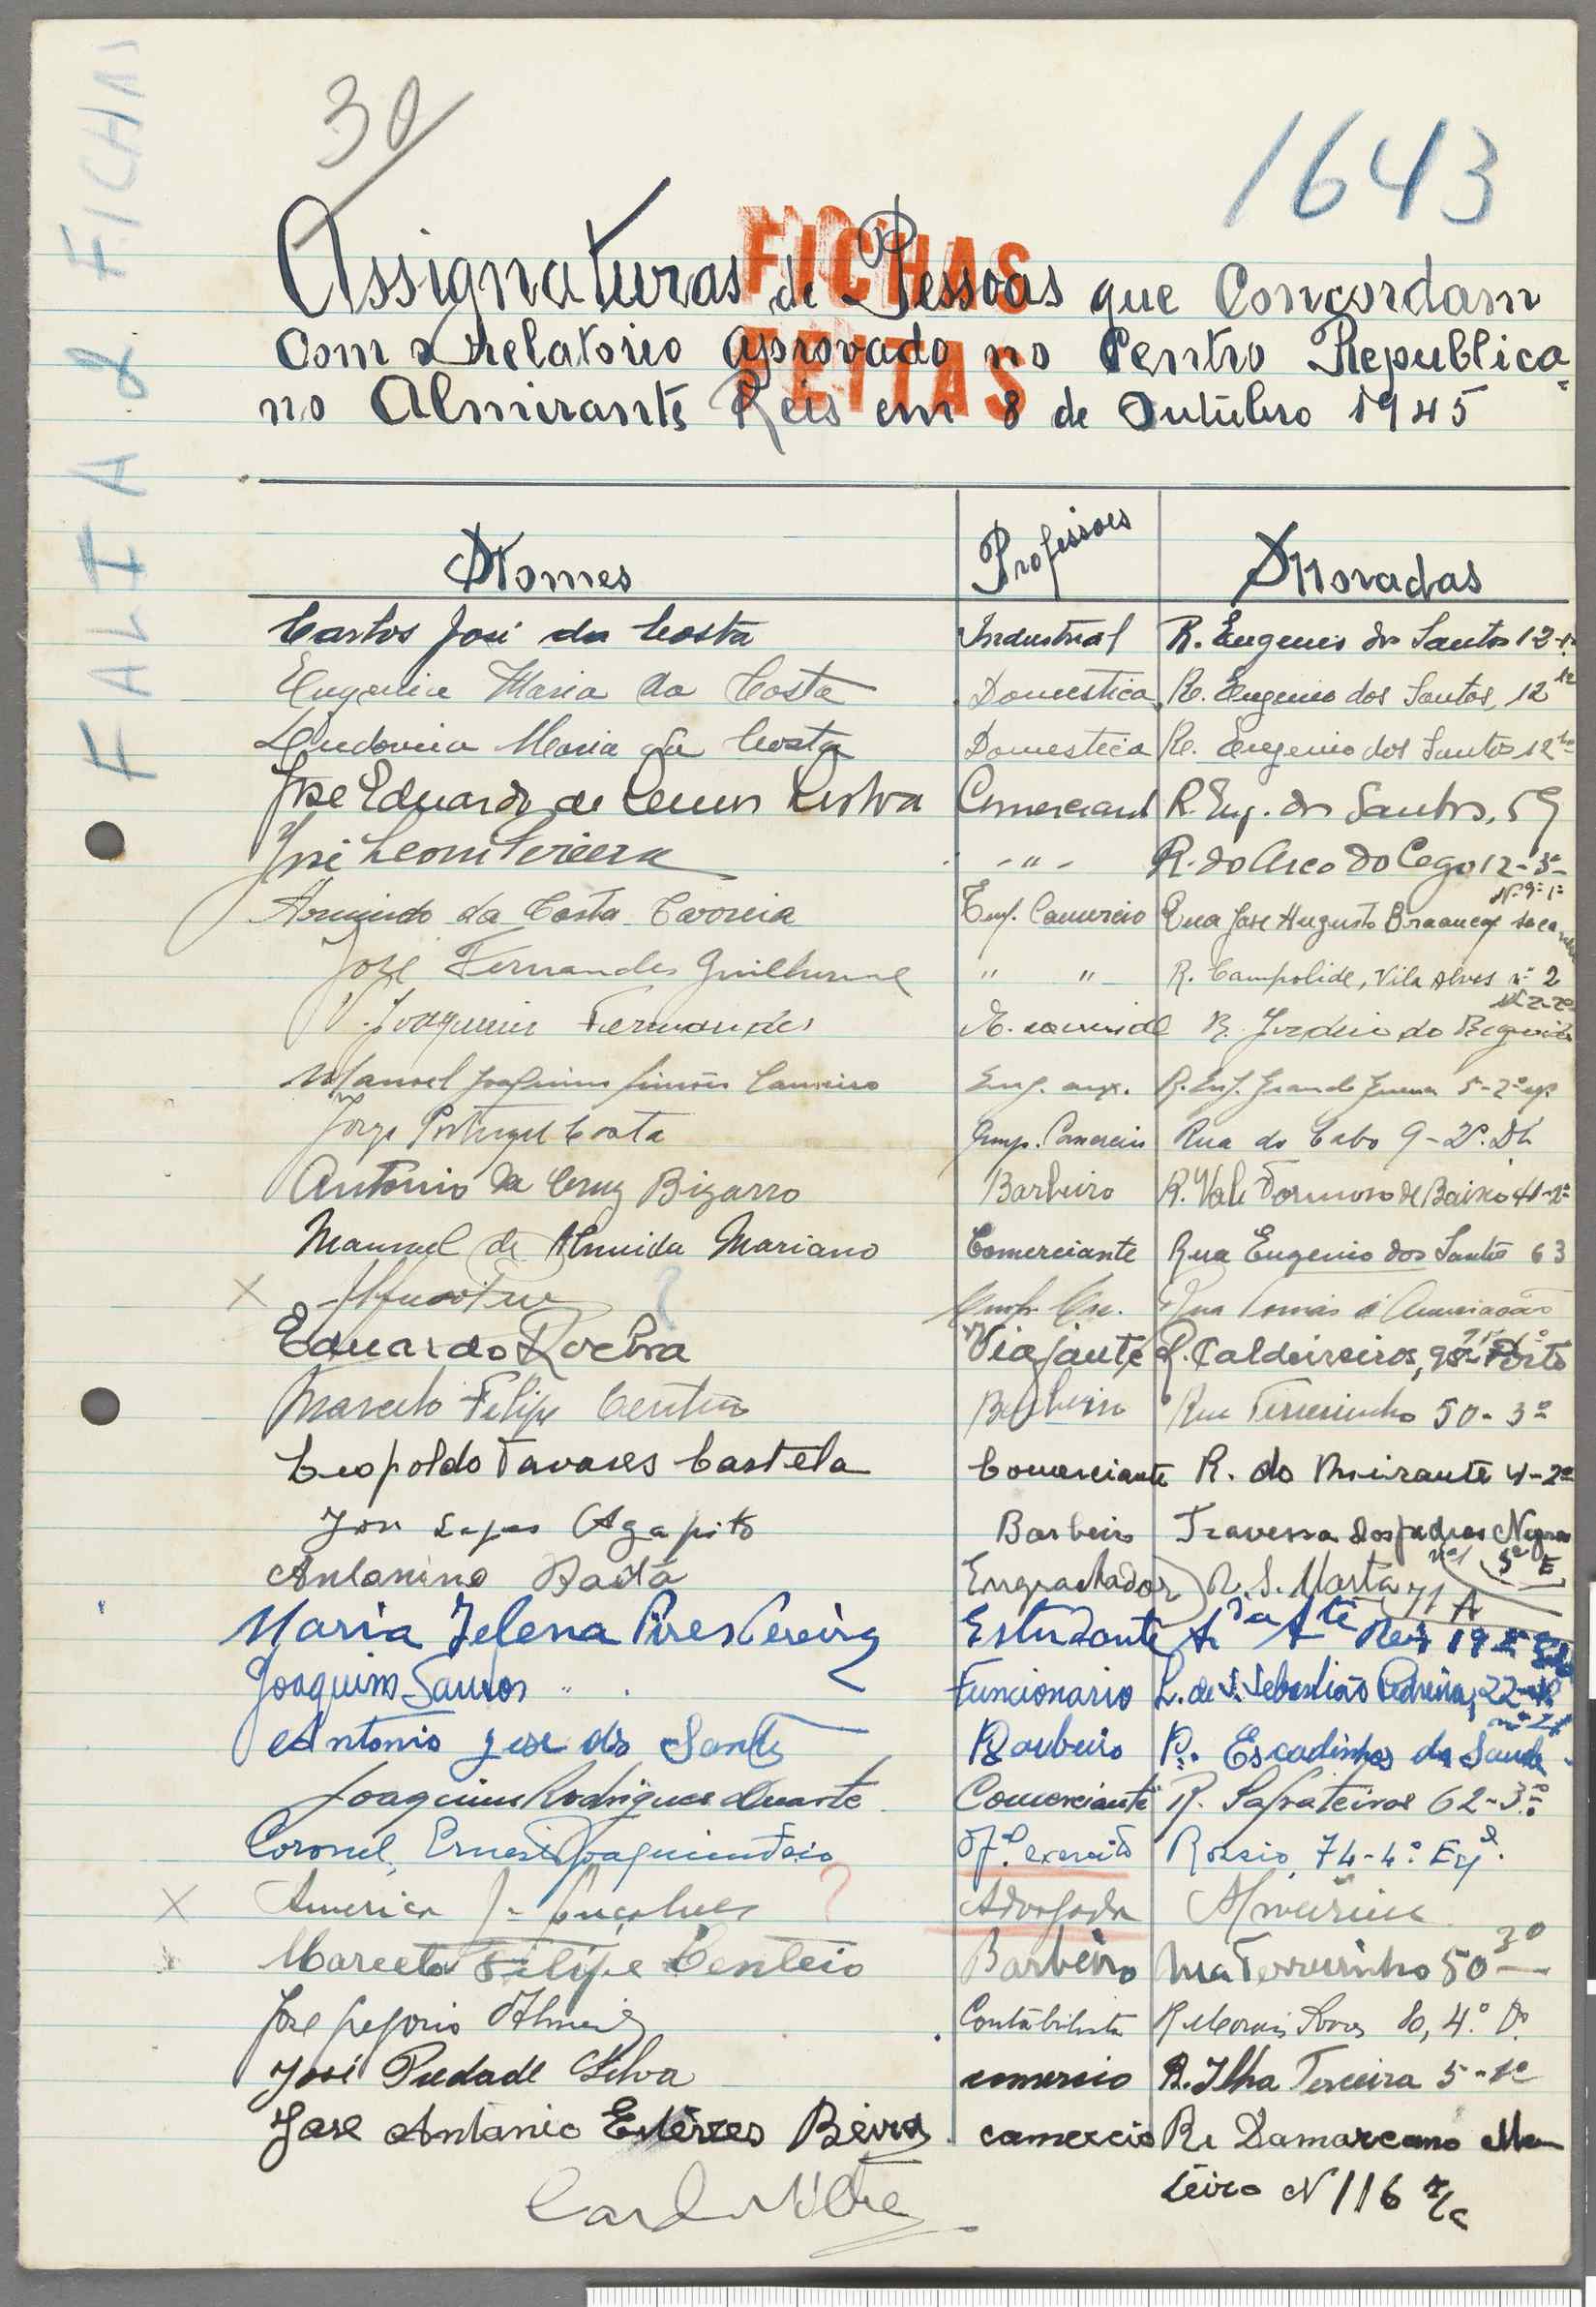 30
1643
FALTA 2 FICHAS
FICHAS
FEITAS
Assignaturas de Pessoas que Concordam
Com o relatorio aprovado no Centro Republica-
no Almirante Reis em 8 de Outubro 1945
Nomes Professoes Moradas
Carlos José da Costa Industrial R. Eugenio dos Santos 12-1º
Eugenia Maria da Costa Domestica R. Eugenio dos Santos, 12 1º
Ludovina Maria da Costa Domestica R. Eugenio dos Santos 12 1º
José Eduardo de Lemos Comerciante R. Eug. dos Santos, 59
José Leoni Pereira - " - R. do Arco do Cego 12-3º
Armindo da Costa Correia Emp. Comercio Rua José Augusto Braancamp Nº 9-1º
José Fernandes Guilherme " " R. Campolide, Vila Alves nº 2
Joaquim Fernandes E. comercial R. do
Manuel Joaquim Simões Emp. aux. R. 5-2º esq.
Jorge Portugal Costa Emp. Comercio Rua do Cabo 9-2º Dt.
Antonio da Cruz Bizarro Barbeiro R. Vale Formoso de Baixo 41-2º
Manuel de Almeida Mariano Comerciante Rua Eugenio dos Santos 63
X ? Emp. Rua Tomás d'Anunciação
Eduardo Rocha Viajante R. Caldeireiros, Porto
Marcelo Filipe Centeio Barbeiro Rua Terreirinho 50-3º
Leopoldo Tavares Castela Comerciante R. do Mirante 4-2º
José Lopes Agapito Barbeiro Travessa das pedras Negras nº 1 5º E
Antonino Baità Engraxador R. S. Marta 71 A
Maria Helena Pires Pereira Estudante Av.da Al.te Reis 19
Joaquim Santos Funcionario L. de S. Sebastião Pedreira, 22
Antonio José dos Santos Barbeiro R. Escadinhas da Saude
Joaquim Rodrigues Duarte Comerciante R. Sapateiros 62-3º
Coronel, Ernesto Joaquim Feio Of.al exercito Rossio, 74-4º Esq.
X America ? Advogada Almeirim
Marcelo Filipe Centeio Barbeiro Rua Terreirinho 50 3º
José Gregorio Almeida Contabilista R. Morais Soares 80, 4º D.
José Piedade Silva comercio R. Ilha Terceira 5-1º
José Antonio Esteves Beirão comercio R. Damasceno Mon
teiro Nº 116 r/c